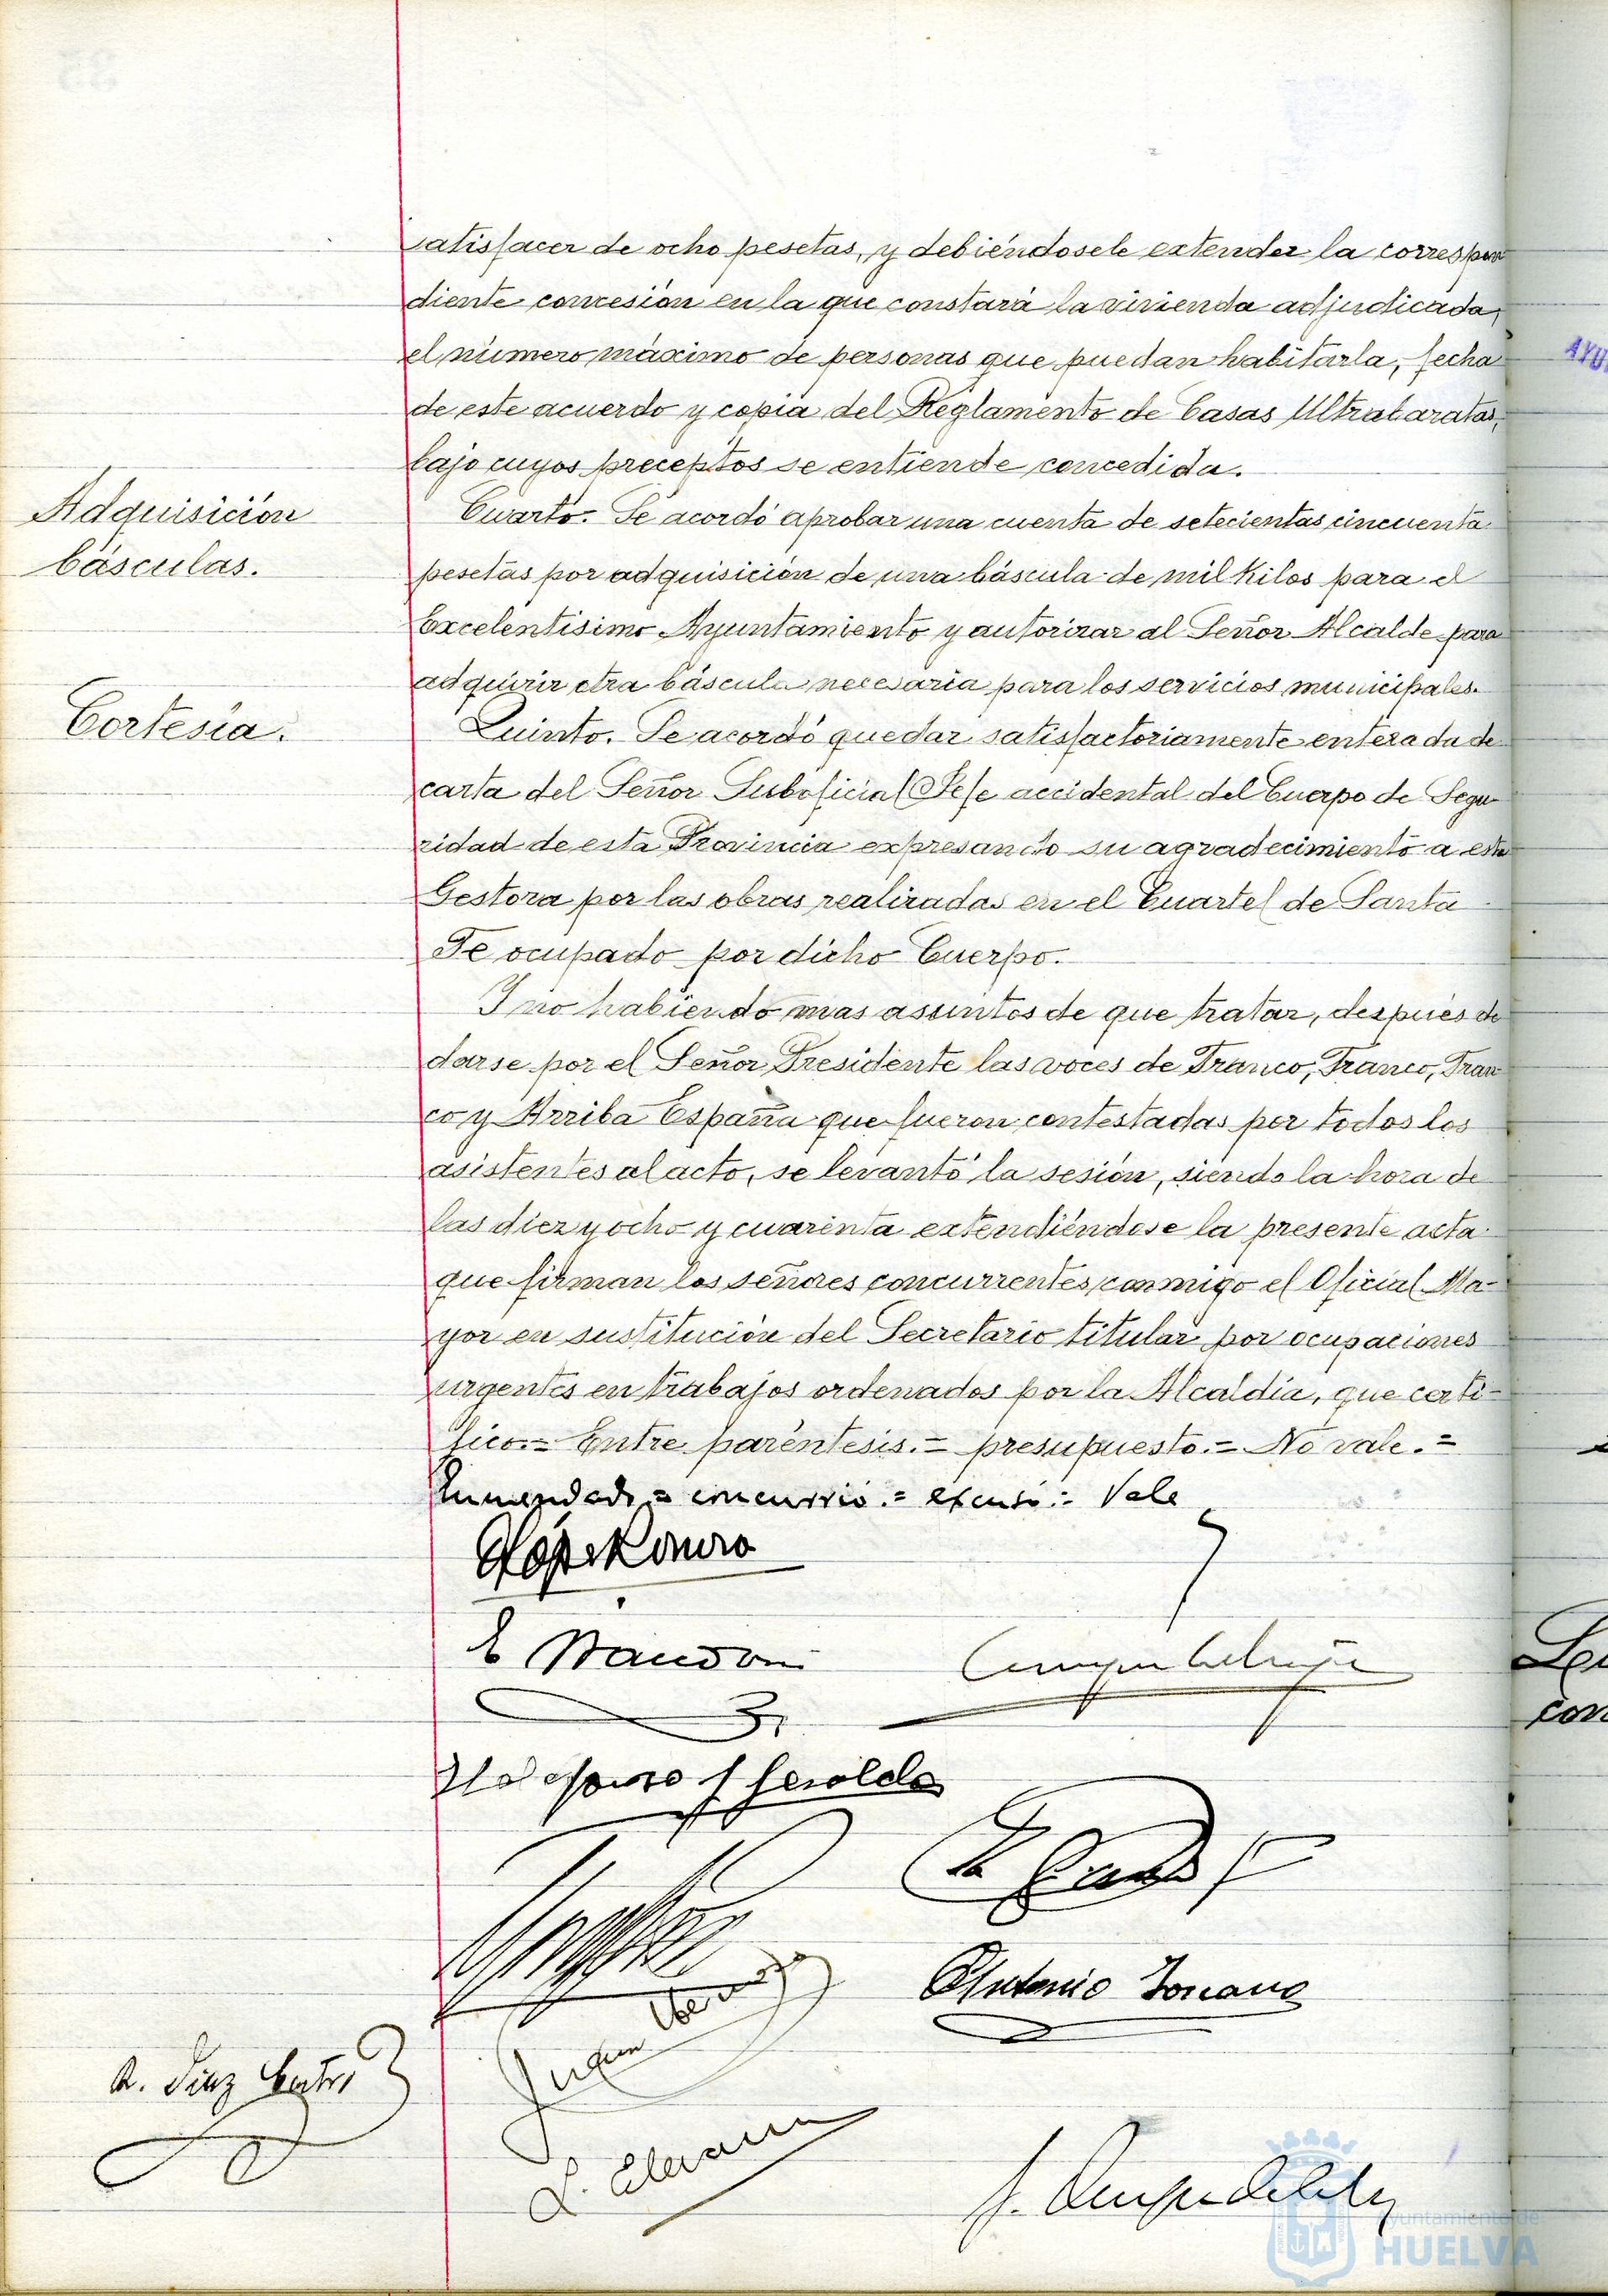 satisfacer de ocho pesetas, y debiéndosele extender la correspon
diente concesión en la que constará la vivienda adjudicada,
el número máximo de personas que puedan habitarla, fecha
de este acuerdo y copia del Reglamento de Casas Ultrabaratas,
bajo cuyos preceptos se entiende concedida.
Adquisición
básculas.
Cuarto. Se acordó aprobar una cuenta de setecientas cincuenta
pesetas por adquisición de una báscula de mil kilos para el
Excelentísimo Ayuntamiento y autorizar al Señor Alcalde para
adquirir otra báscula necesaria para los servicios municipales.
Cortesía.
Quinto. Se acordó quedar satisfactoriamente enterada de
carta del Señor Suboficial Jefe accidental del Cuerpo de Segu-
ridad de esta Provincia expresando su agradecimiento a esta
Gestora por las obras realizadas en el Cuartel de Santa
Fe ocupado por dicho Cuerpo.
Y no habiendo mas asuntos de que tratar, después de
darse por el Señor Presidente las voces de Franco, Franco, Fran
co y Arriba España que fueron contestadas por todos los
asistentes al acto, se levantó la sesión, siendo la hora de
las diez y ocho y cuarenta extendiéndose la presente acta
que firman los señores concurrentes conmigo el Oficial Ma-
yor en sustitución del Secretario titular por ocupaciones
urgentes en trabajos ordenados por la Alcaldía, que certi-
fico.= Entre paréntesis.= presupuesto.= No vale.=
Enmendado = concurrió.= excusó.= Vale
Antonio
R. Diaz
Ayuntamiento de
HUELVA